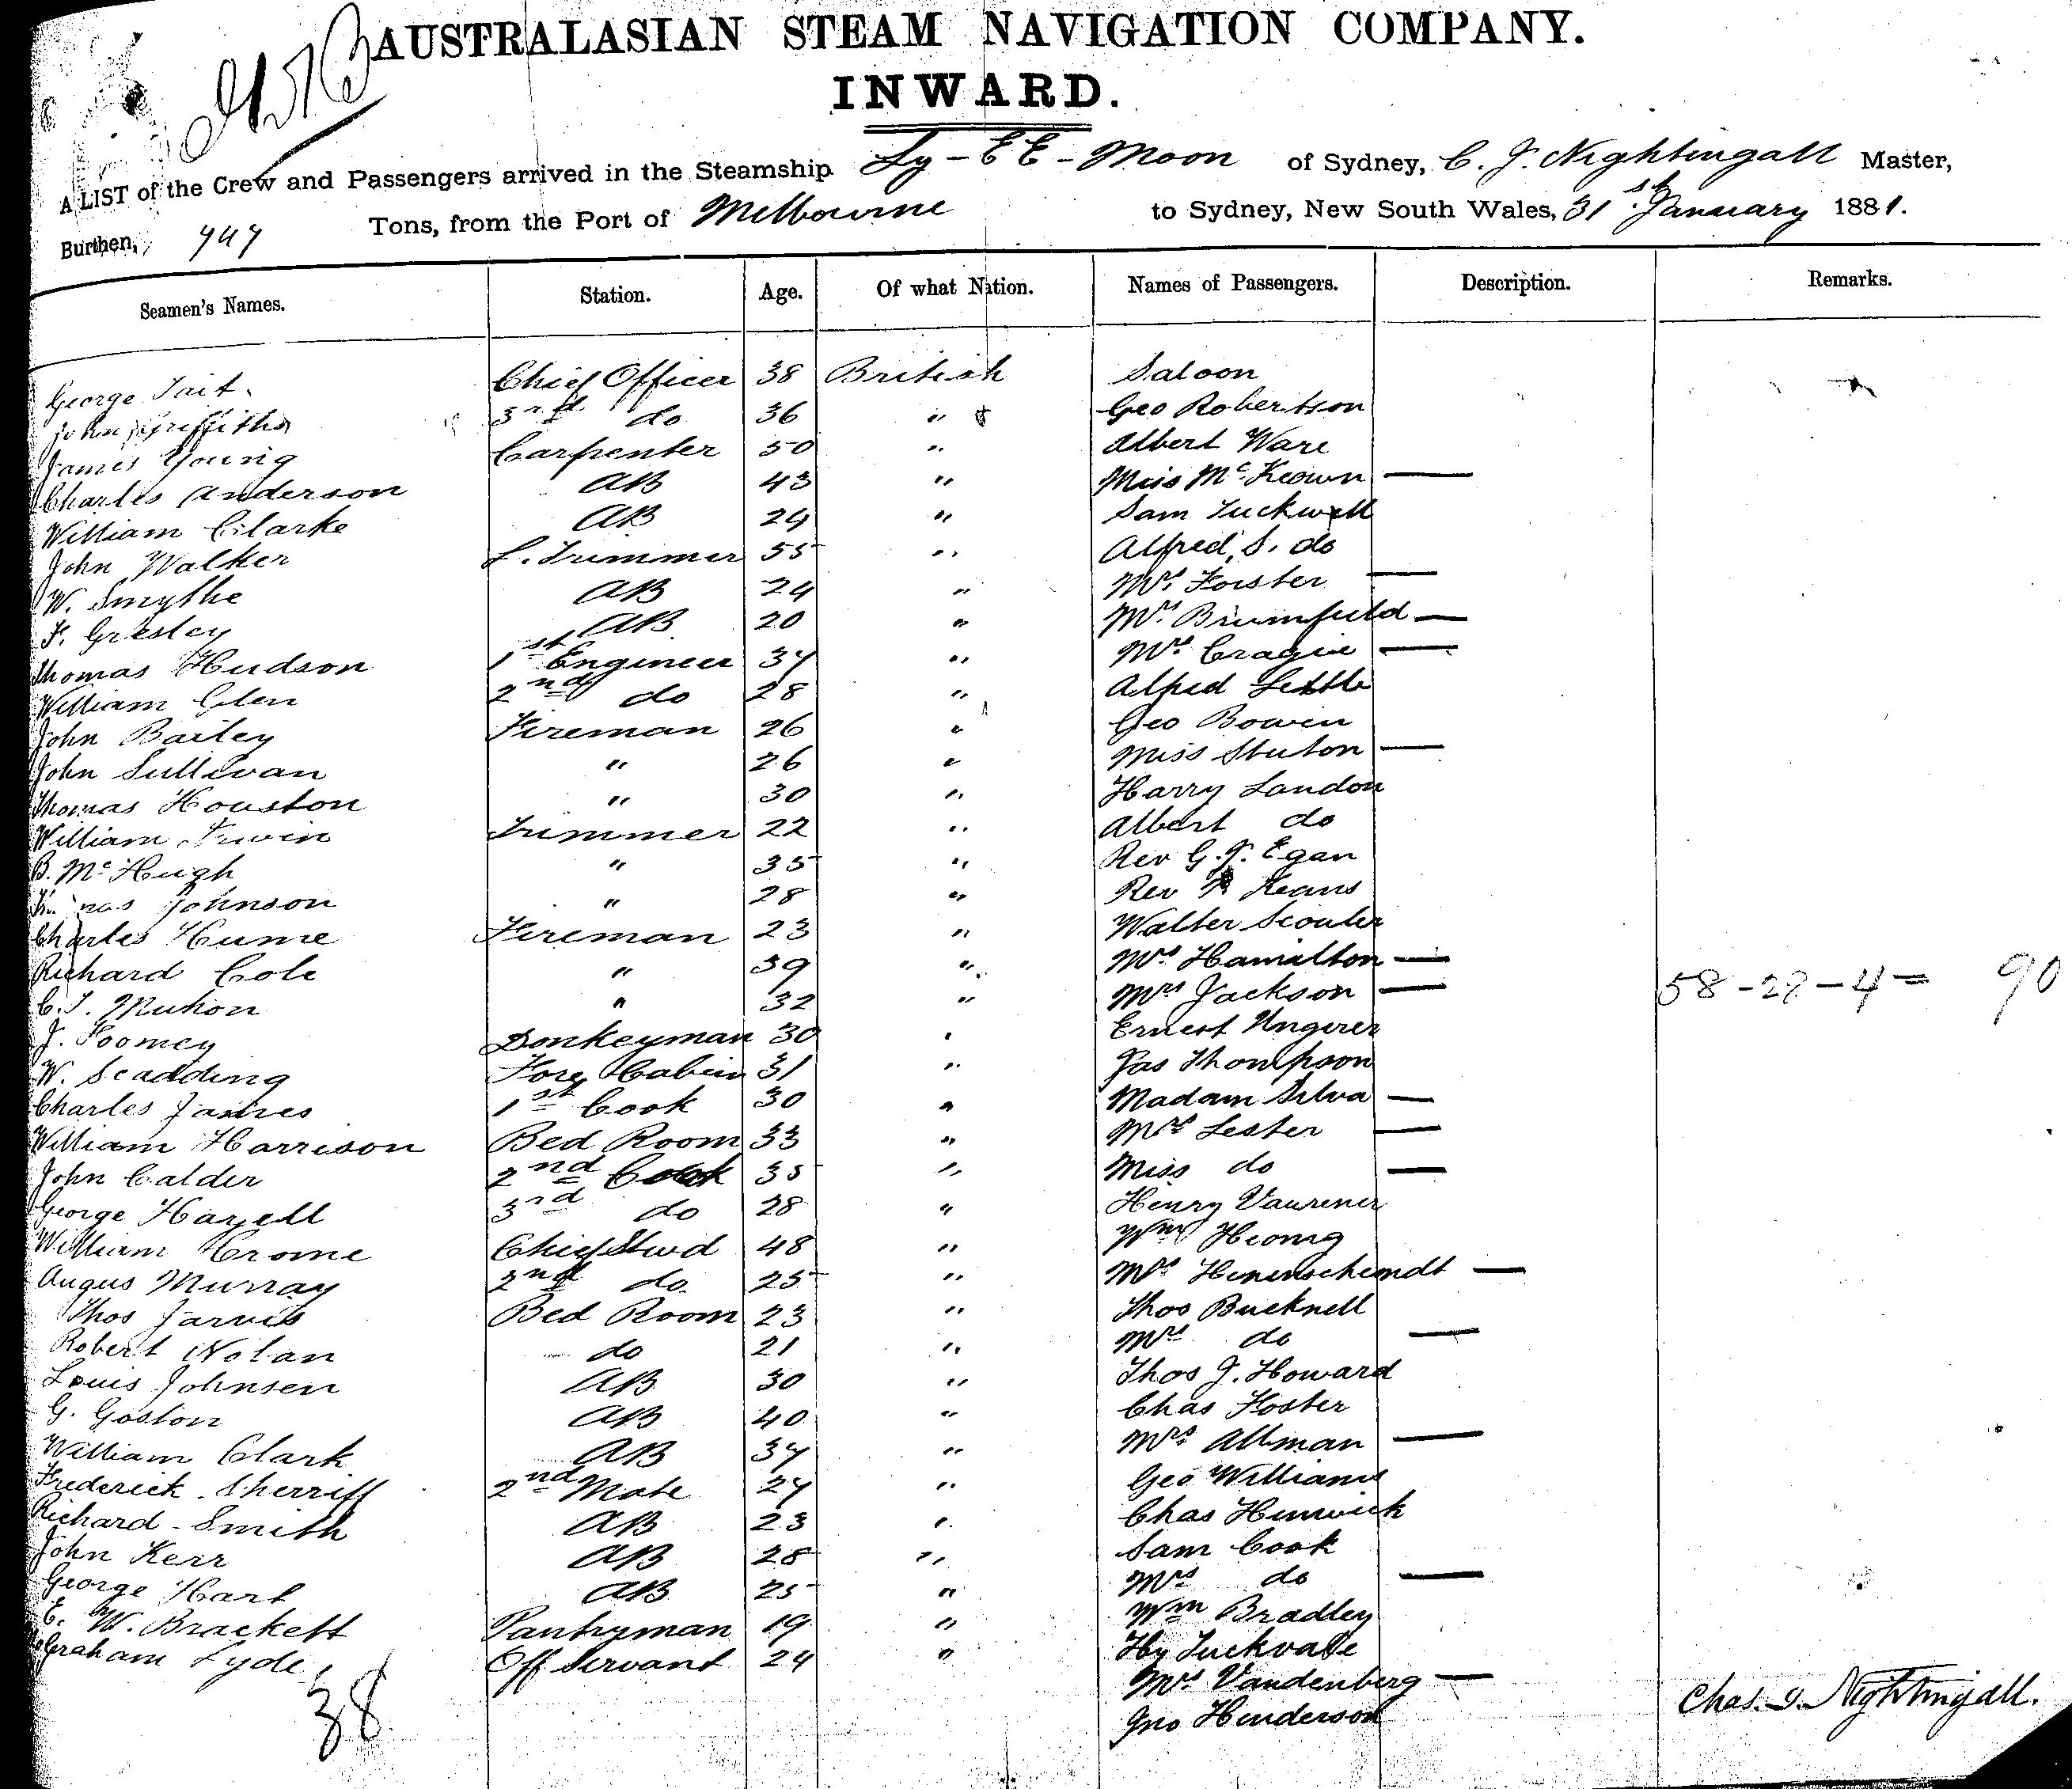 AUSTRALASIAN STEAM NAVIGATION COMPANY.
INWARD.
A LIST of the Crew and Passengers arrived in the Steamship Ly-EE-Moon of Sydney, C. J. Nightingall Master,
Burthen, 747 Tons, from the Port of Melbourne to Sydney, New South Wales, 31st January 1881.
Seamen's Names. Station. Age. Of what Nation. Names of Passengers. Description. Remarks.
George Tait. Chief Officer 38 British Saloon
John Griffiths 3rd do 36 " Geo Robertson
James Young Carpenter 50 " Albert Ware
Charles Anderson AB 43 " Miss McKeown —
William Clarke AB 24 " Sam Tuckwell
John Walker L. Trimmer 55 " Alfred S. do
W. Smythe AB 24 " Mrs Forster —
F. Gresley AB 20 " Mrs Brumfield —
Thomas Hudson 1st Engineer 37 " Mrs Cragie —
William Glen 2nd do 28 " Alfred Settle
John Bailey Fireman 26 " Geo Bowen
John Sullivan " 26 " Miss —
Thomas Houston " 30 " Harry Landon
William Irwin Trimmer 22 " Albert do
B. McHugh " 35 " Rev G. F. Egan
Johnson " 28 " Rev Keans
Charles Hume Fireman 23 " Walter Scouler
Richard Cole " 39 " Mrs Hamilton —
C. J. " 32 " Mrs Jackson — 58-28-4= 90
J. Toomey Donkeyman 30 " Ernest Ungerer
W. Scadding Fore Cabin 31 " Jas Thompson
Charles James 1st Cook 30 " Madam Silva —
William Harrison Bed Room 33 " Mrs Lester —
John Calder 2nd Cook 35 " Miss do —
George Hazell 3rd do 28 " Henry
William Crome Chief Stwd 48 " Wm
Angus Murray 2nd do. 25 " Mrs —
Thos Jarvis Bed Room 23 " Thos Bucknell
Robert Nolan do 21 " Mrs do —
Louis Johnsen AB 30 " Thos J. Howard
G. Goston AB 40 " Chas Foster
William Clark AB 37 " Mrs Allman —
Frederick Sherriff 2nd Mate 27 " Geo Williams
Richard Smith AB 23 " Chas Henwick
John Kerr AB 28 " Sam Cook
George Hart AB 25 " Mrs do —
E. W. Brackett Pantryman 19 " Wm Bradley
Graham Lyde Off Servant 24 " Hy Tuckvale
Mrs Vandenberg —
38 Jno Henderson Chas. J. Nightingall.